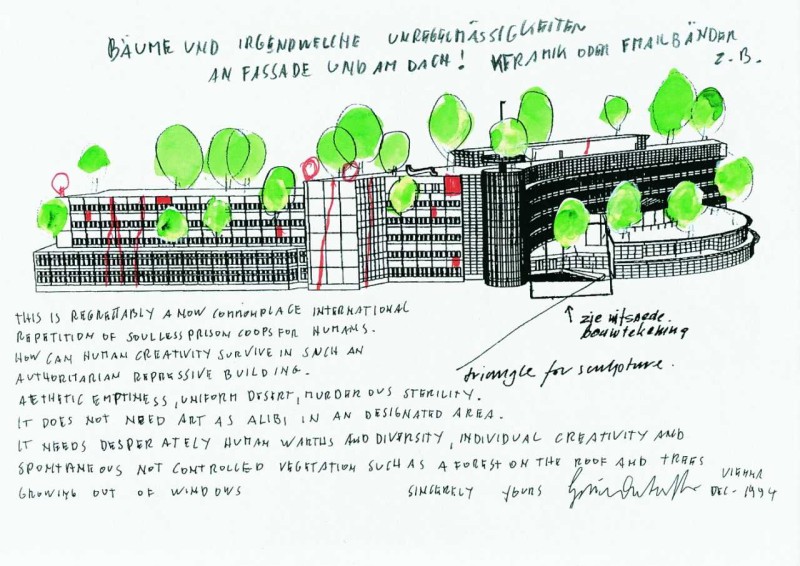 BÄUME UND IRGENDWELCHE UNREGELMÄSSIGKEITEN
AN FASSADE UND AM DACH! KERAMIK ODER EMAILBÄNDER
Z.B.
THIS IS REGRETTABLY A NOW COMMONPLACE INTERNATIONAL
REPETITION OF SOULLESS PRISON COOPS FOR HUMANS.
HOW CAN HUMAN CREATIVITY SURVIVE IN SUCH AN
AUTHORITARIAN REPRESSIVE BUILDING.
AETHETIC EMPTINESS, UNIFORM DESERT, MURDEROUS STERILITY.
IT DOES NOT NEED ART AS ALIBI IN AN DESIGNATED AREA.
IT NEEDS DESPERATELY HUMAN WARTHS AND DIVERSITY, INDIVIDUAL CREATIVITY AND
SPONTANEOUS NOT CONTROLLED VEGETATION SUCH AS A FOREST ON THE ROOF AND TREES
GROWING OUT OF WINDOWS
SINCERELY YOURS
VIENNA
DEC-1994
↑ zie uitsnede.
bouwtekening
triangle for sculpture.